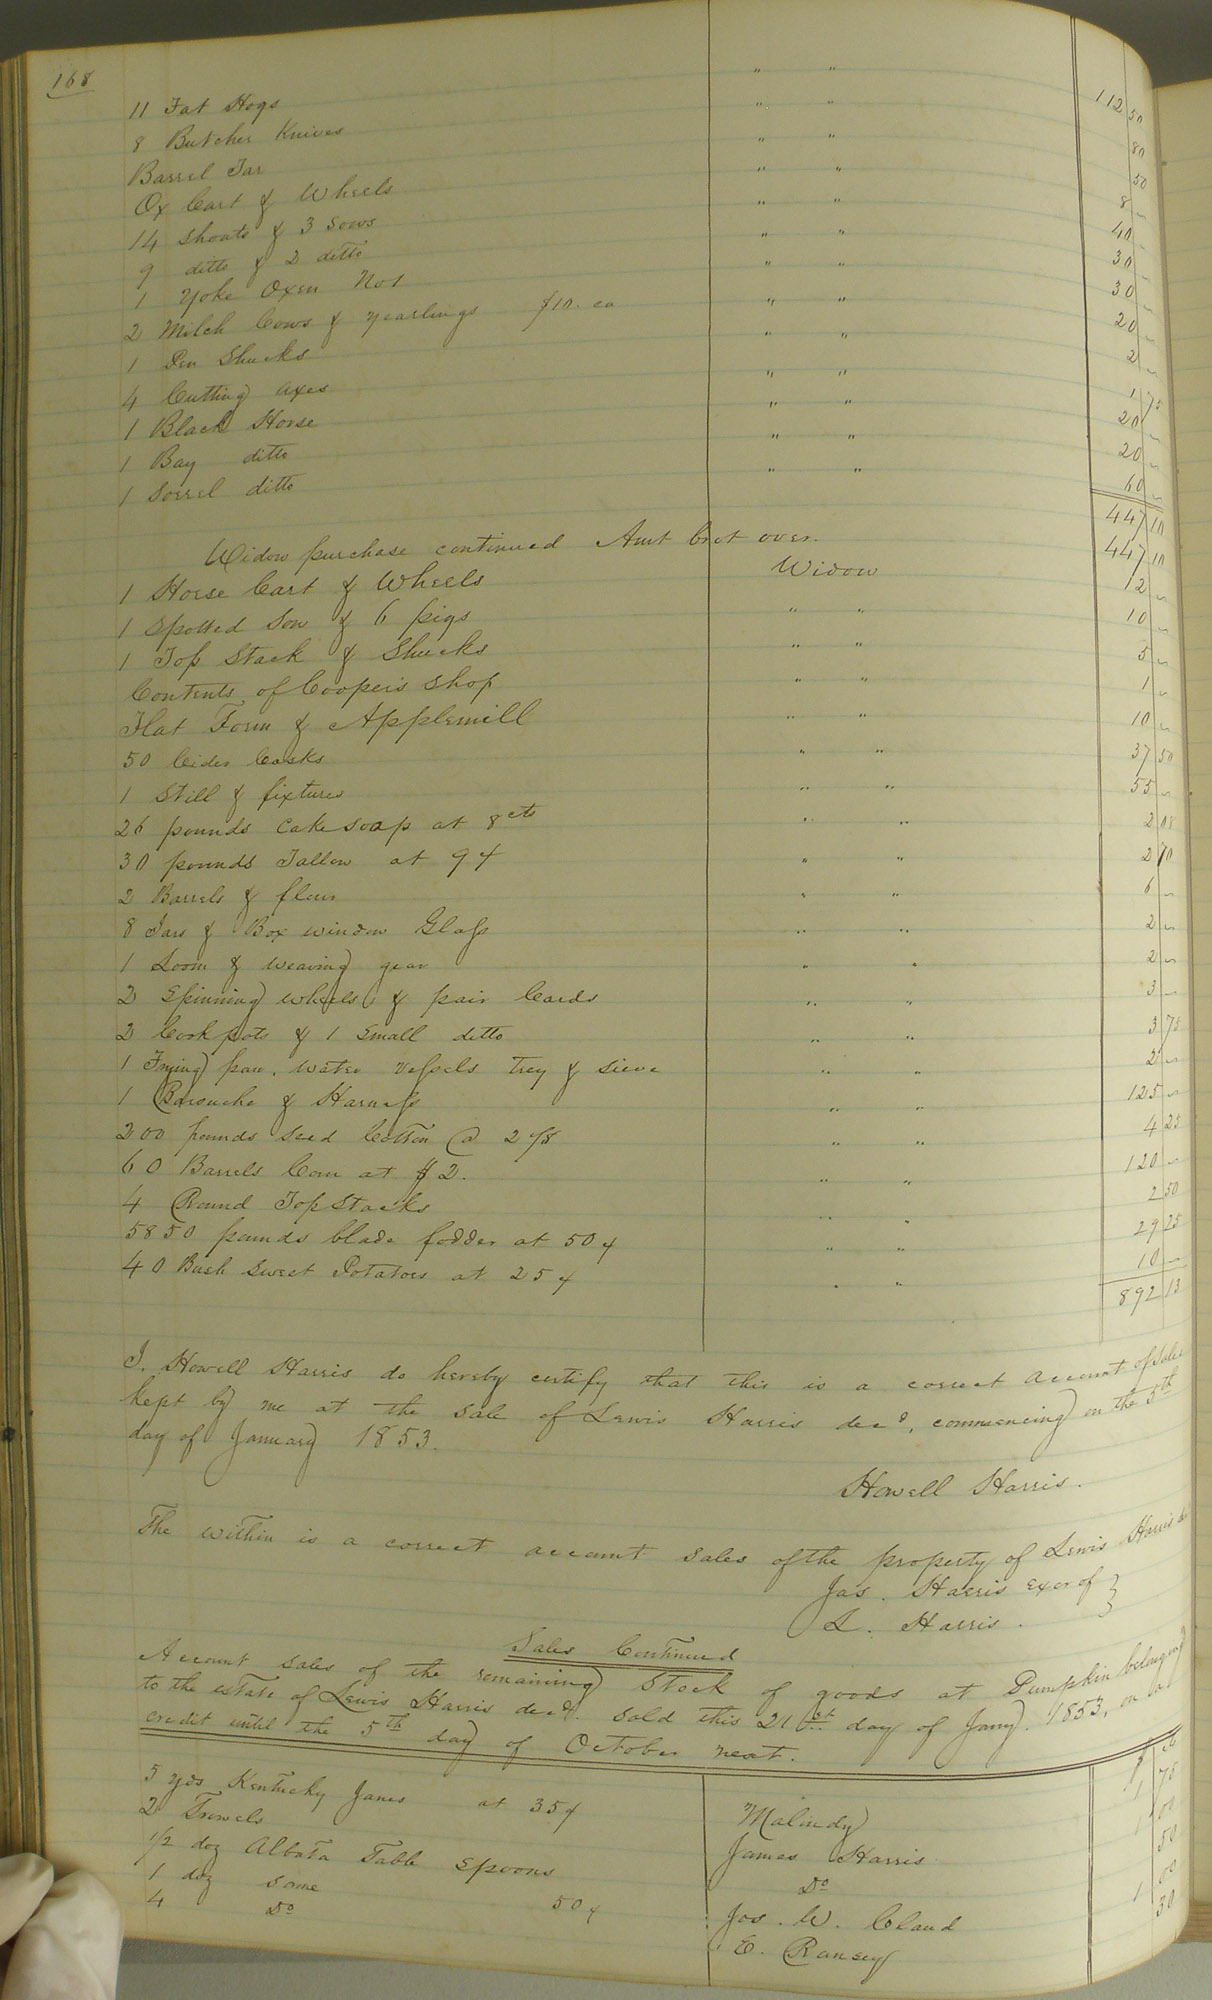 168
" "
11 Fat Hogs " " 112 50
8 Butcher Knives " " 80
Barrel Tar " " 50
Ox Cart & Wheels " " 8 "
14 Shoats & 3 Sows " " 40 "
9 ditto & 2 ditto " " 30 "
1 Yoke Oxen No 1 " " 30 "
2 Milch Cows & yearlings $10. ea " " 20 "
1 Pen Shucks " " 2 "
4 Cutting axes " " 1 75
1 Black Horse " " 20 "
1 Bay ditto " " 20 "
1 Sorrel ditto " " 60 "
447 10
Widow purchase continued Amt brot over. 447 10
1 Horse Cart & Wheels Widow 12 "
1 Spotted Sow & 6 pigs " " 10 "
1 Top Stack & Shucks " " 5 "
Contents of Cooper's Shop " " 1 "
Flat Form & Applemill " " 10 "
50 Cider Casks " " 37 50
1 Still & fixtures " " 55 "
26 pounds Cake soap at 8 cts " " 2 08
30 pounds Tallow at 9 ¢ " " 2 70
2 Barrels & flour " " 6 "
8 Jars & Box window Glass " " 2 "
1 Loom & weaving gear " " 2 "
2 Spinning wheels & pair Cards " " 3 "
2 Cook pots & 1 Small ditto " " 3 75
1 Frying pan, water vessels trey & sieve " " 2 "
1 Barouche & Harness " " 125 "
200 pounds Seed Cotton @ 2 1/8 " " 4 25
60 Barrels Corn at $2. " " 120 "
4 Round Top Stacks " " 2 50
5850 pounds blade fodder at 50 ¢ " " 29 25
40 Bush Sweet Potatoes at 25 ¢ " " 10 "
892 13
I. Howell Harris do hereby certify that this is a correct account of Sales
kept by me at the sale of Lewis Harris decd, commencing on the 5th
day of January 1853.
Howell Harris.
The within is a correct account sales of the property of Lewis Harris
Jas. Harris Exer of }
L. Harris.
Sales Continued
Account sales of the remaining Stock of goods at Pumpkin belonging
to the estate of Lewis Harris decd. sold this 21st day of Jany. 1853, on a
credit until the 5th day of October next.
5 yds Kentucky Janes at 35 ¢ Malindy 1 75
2 Trowels James Harris 1 00
1/2 doz Albata Table Spoons Do 50
1 doz Same Jos. W. Claud 1 00
4 Do 50 ¢ E. Ransey 30